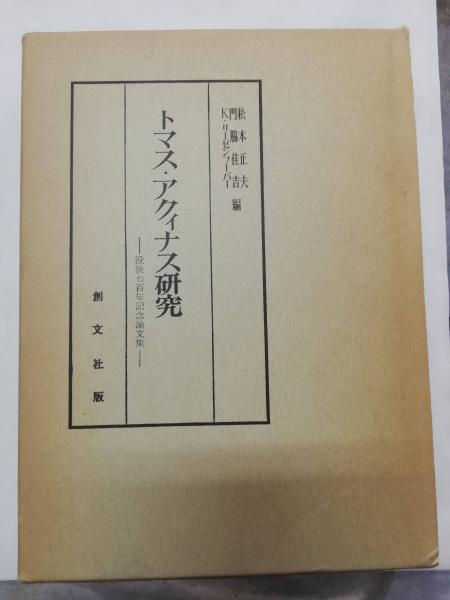 松本正夫
門脇佳吉
K・リーゼンフーバー
編
トマス・アクィナス研究
——没後七百年記念論文集——
創文社版